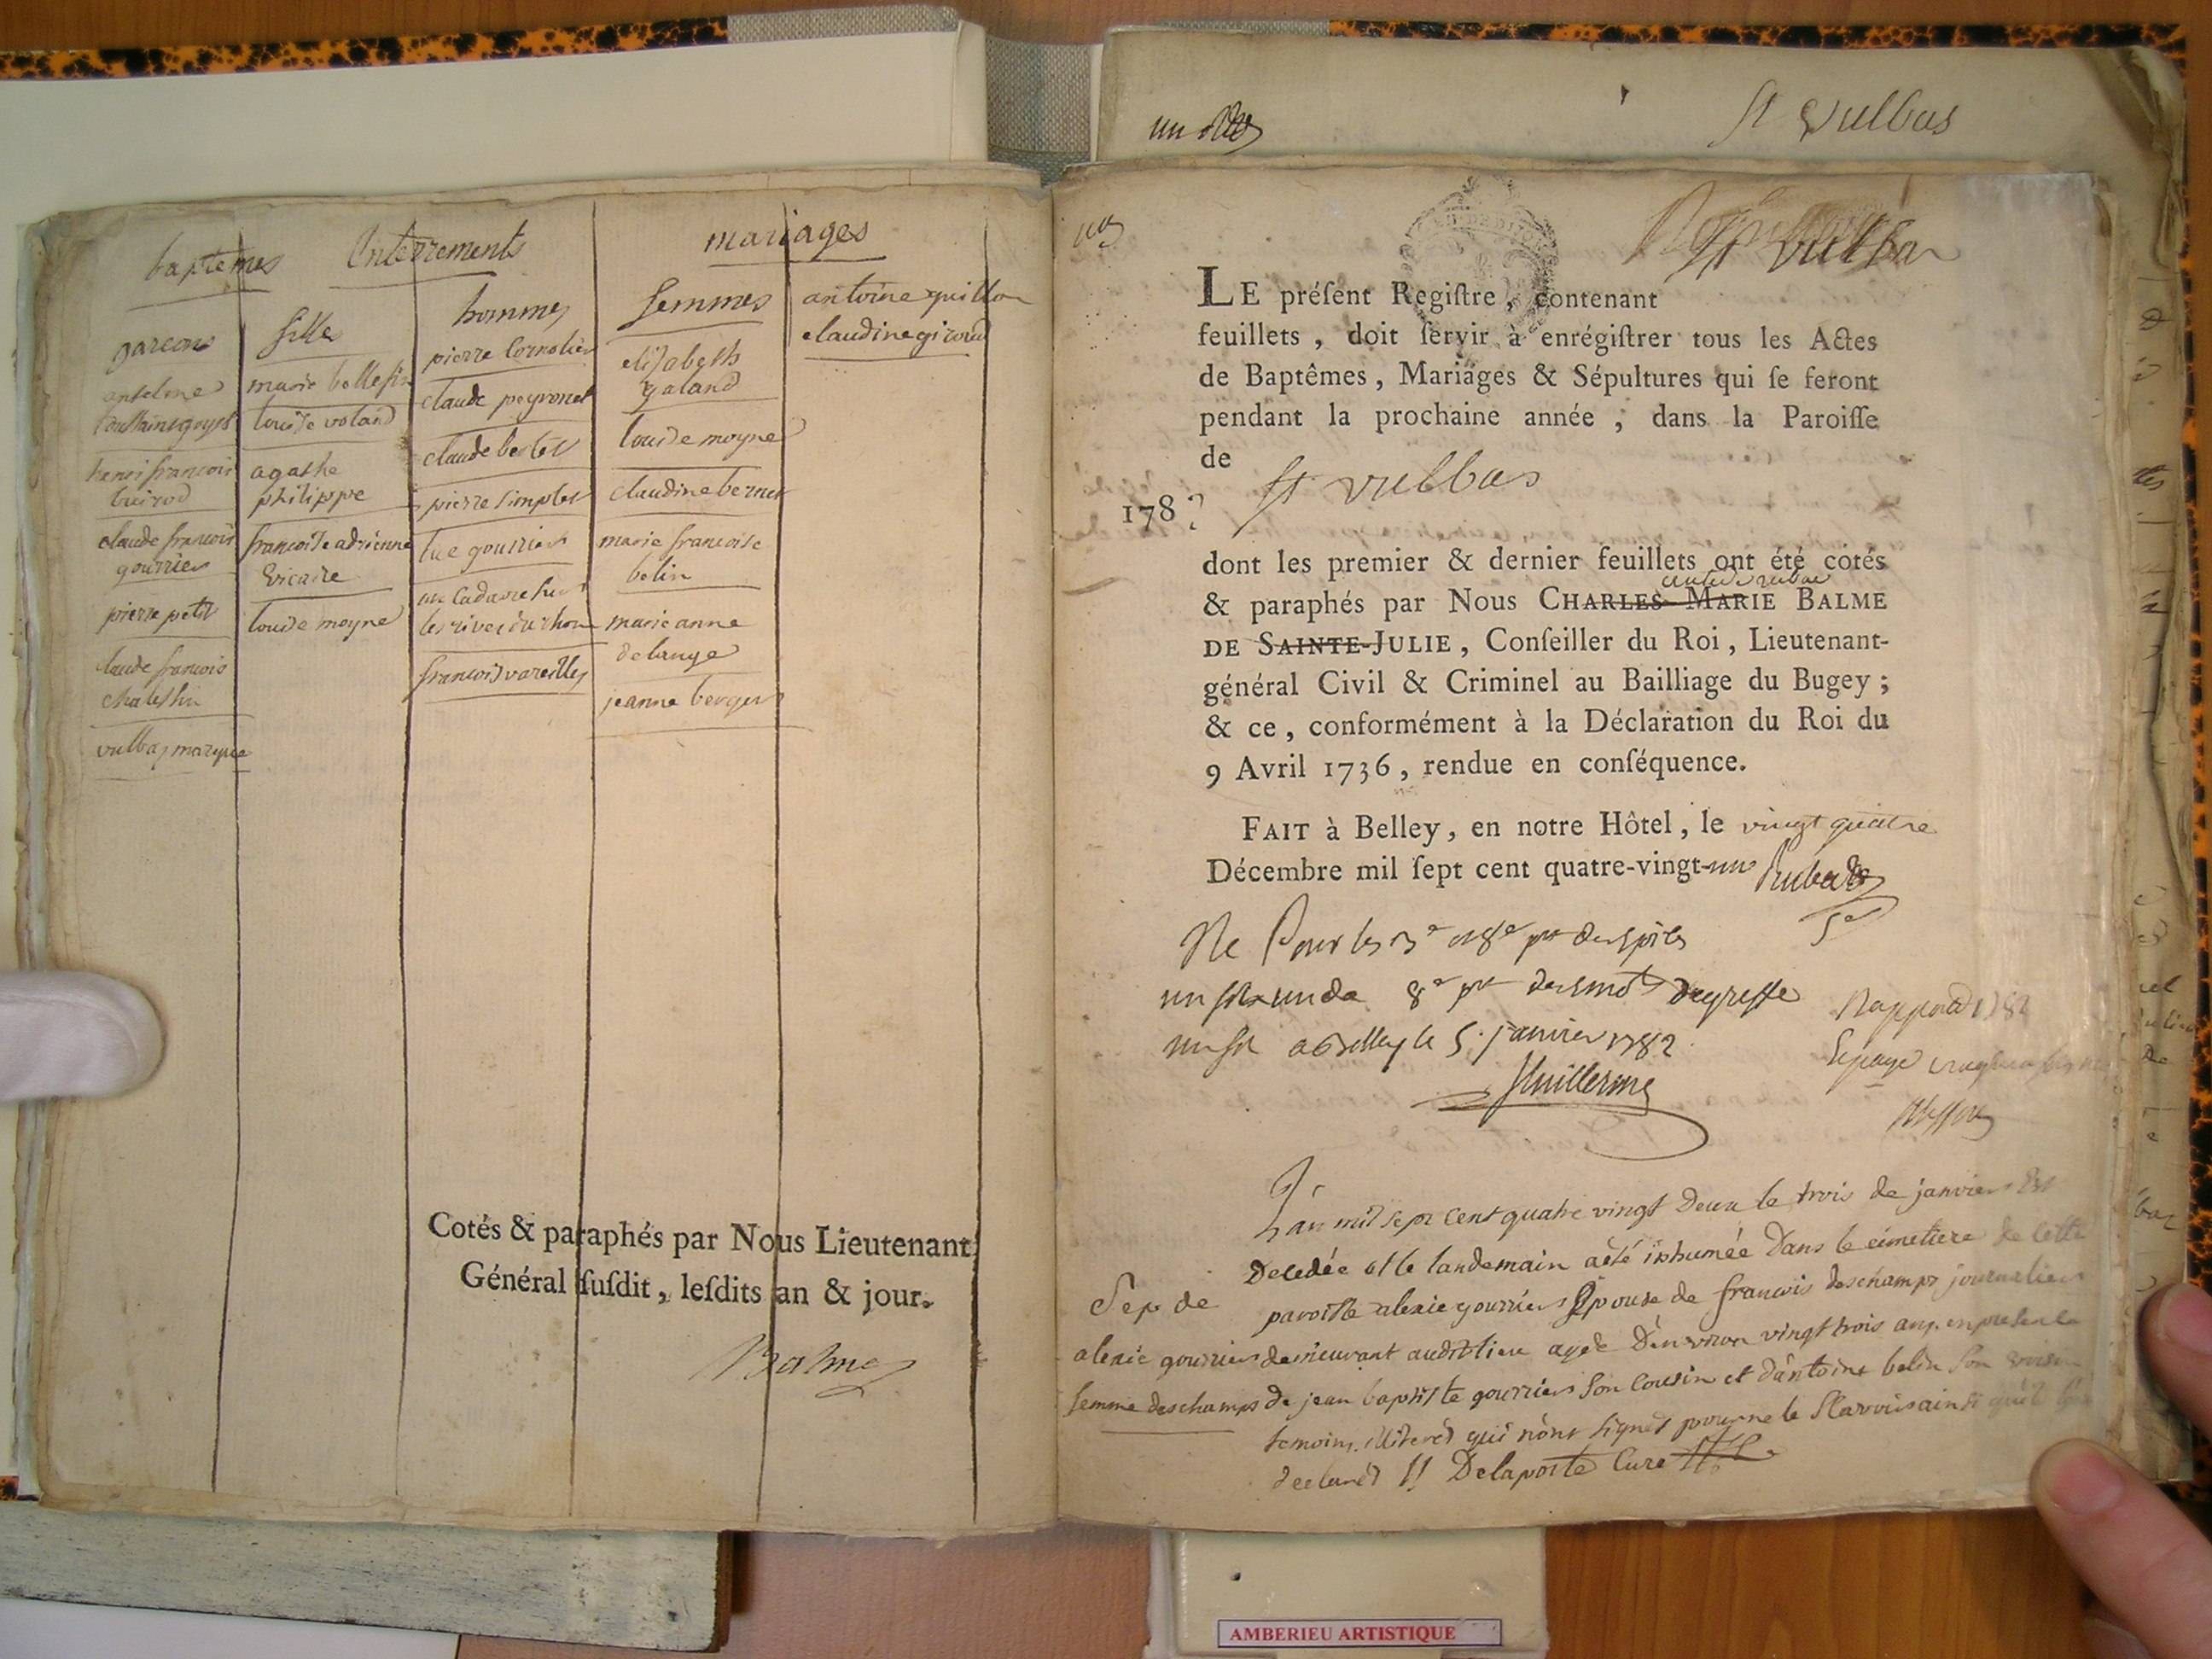 baptemes
Enterrements
mariages
garcons
anselme
toussaint goyet
henri francois
claude francois
gourrier
pierre petit
claude francois
chatelain
vulbas marque
filles
marie bellefin
louise voland
agathe
philippe
francoise adrienne
vicaire
louise moyne
hommes
pierre Cornolier
claude peyronet
claude berlet
pierre simplet
luc gourrier
un Cadavre sur
les rives du rhone
francois vareilles
femmes
elisabeth
galand
louise moyne
claudine bernet
marie francoise
belin
marie anne
delange
jeanne berger
antoine quillon
claudine giroud
Cotés & paraphés par Nous Lieutenant
Général ſuſdit, leſdits an & jour.
Balme
un
St Vulbas
St Vulbas
LE préſent Regiſtre, contenant
feuillets, doit ſervir à enrégiſtrer tous les Actes
de Baptêmes, Mariages & Sépultures qui ſe feront
pendant la prochaine année, dans la Paroiſſe
de
St vulbas
1782
dont les premier & dernier feuillets ont été cotés
& paraphés par Nous CHARLES-MARIE BALME
DE SAINTE-JULIE, Conſeiller du Roi, Lieutenant-
général Civil & Criminel au Bailliage du Bugey;
& ce, conformément à la Déclaration du Roi du
9 Avril 1736, rendue en conſéquence.
FAIT à Belley, en notre Hôtel, le vingt quatre
Décembre mil ſept cent quatre-vingt-un
Re Pour les
8e degreffe
un sol a Belley le 5. janvier 1782
Guillerme
Rapport 1782
L'an mil sept cent quatre vingt deux le trois de janvier est
Decedée et le landemain a eté inhumée dans le cimetiere de cette
paroisse alexie gourrier Epouse de francois deschamps journalier
Sep. de
alexie gourrier
femme deschamps
demeurant audit lieu agée d'environ vingt trois ans en presence
de jean baptiste gourrier son Cousin et d'antoine belin son voisin
temoins illiterés qui n'ont signés pour ne le sçavoir ainsi qu'il
declarés // Delaporte Curé
AMBERIEU ARTISTIQUE